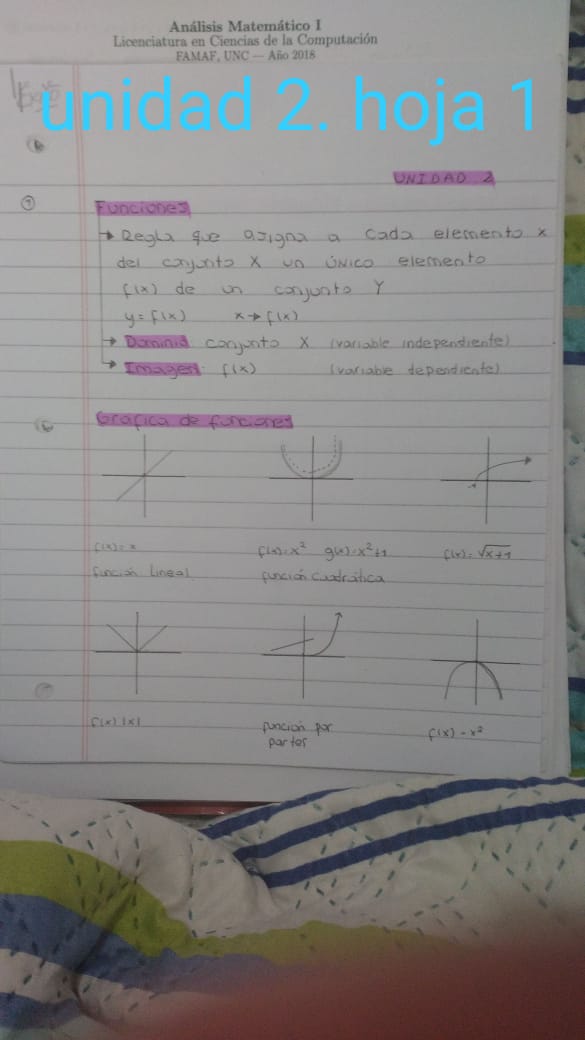 Análisis Matemático I
Licenciatura en Ciencias de la Computación
FAMAF, UNC — Año 2018
unidad 2. hoja 1
UNIDAD 2
Funciones
→ Regla que asigna a cada elemento x
del conjunto X un único elemento
f(x) de un conjunto Y
y = f(x) x → f(x)
→ Dominio conjunto X (variable independiente)
→ Imagen: f(x) (variable dependiente)
Gráfica de funciones
f(x) = x f(x) = x² g(x) = x² + 1 f(x) = √x+1
función lineal función cuadrática
f(x) |x| función por partes f(x) - x²